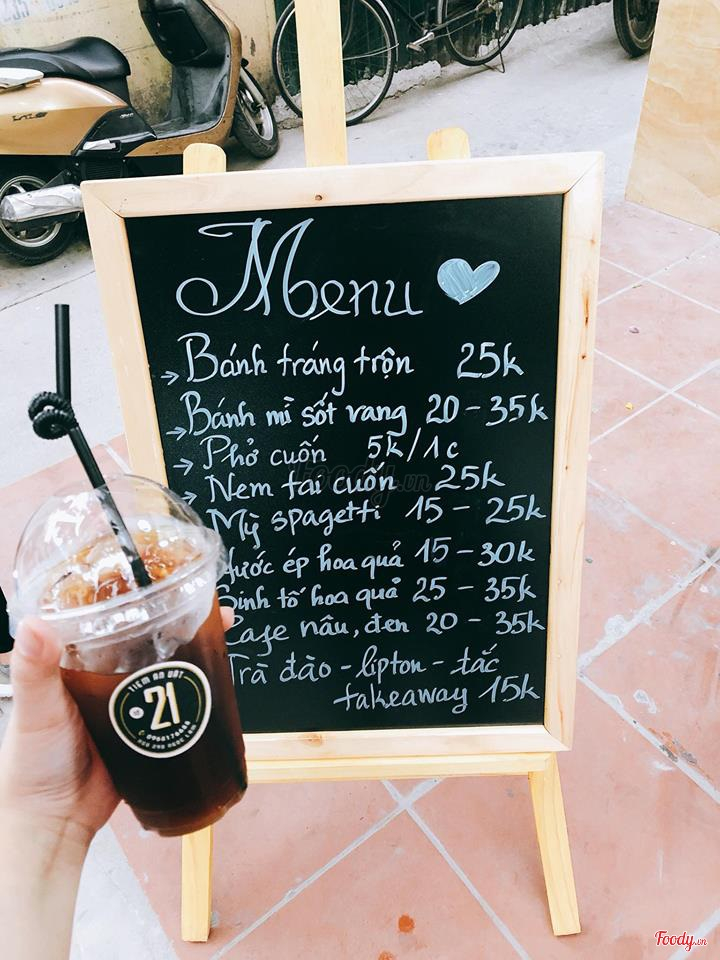 Menu
→ Bánh tráng trộn 25k
→ Bánh mì sốt vang 20-35k
→ Phở cuốn 5k/1c
→ Nem tai cuốn 25k
Mỳ spagetti 15-25k
Nước ép hoa quả 15-30k
Sinh tố hoa quả 25-35k
Cafe nâu, đen 20-35k
Trà đào - lipton - tắc
takeaway 15k
TIỆM ĂN VẶT
21
Foody.vn
Foody.vn